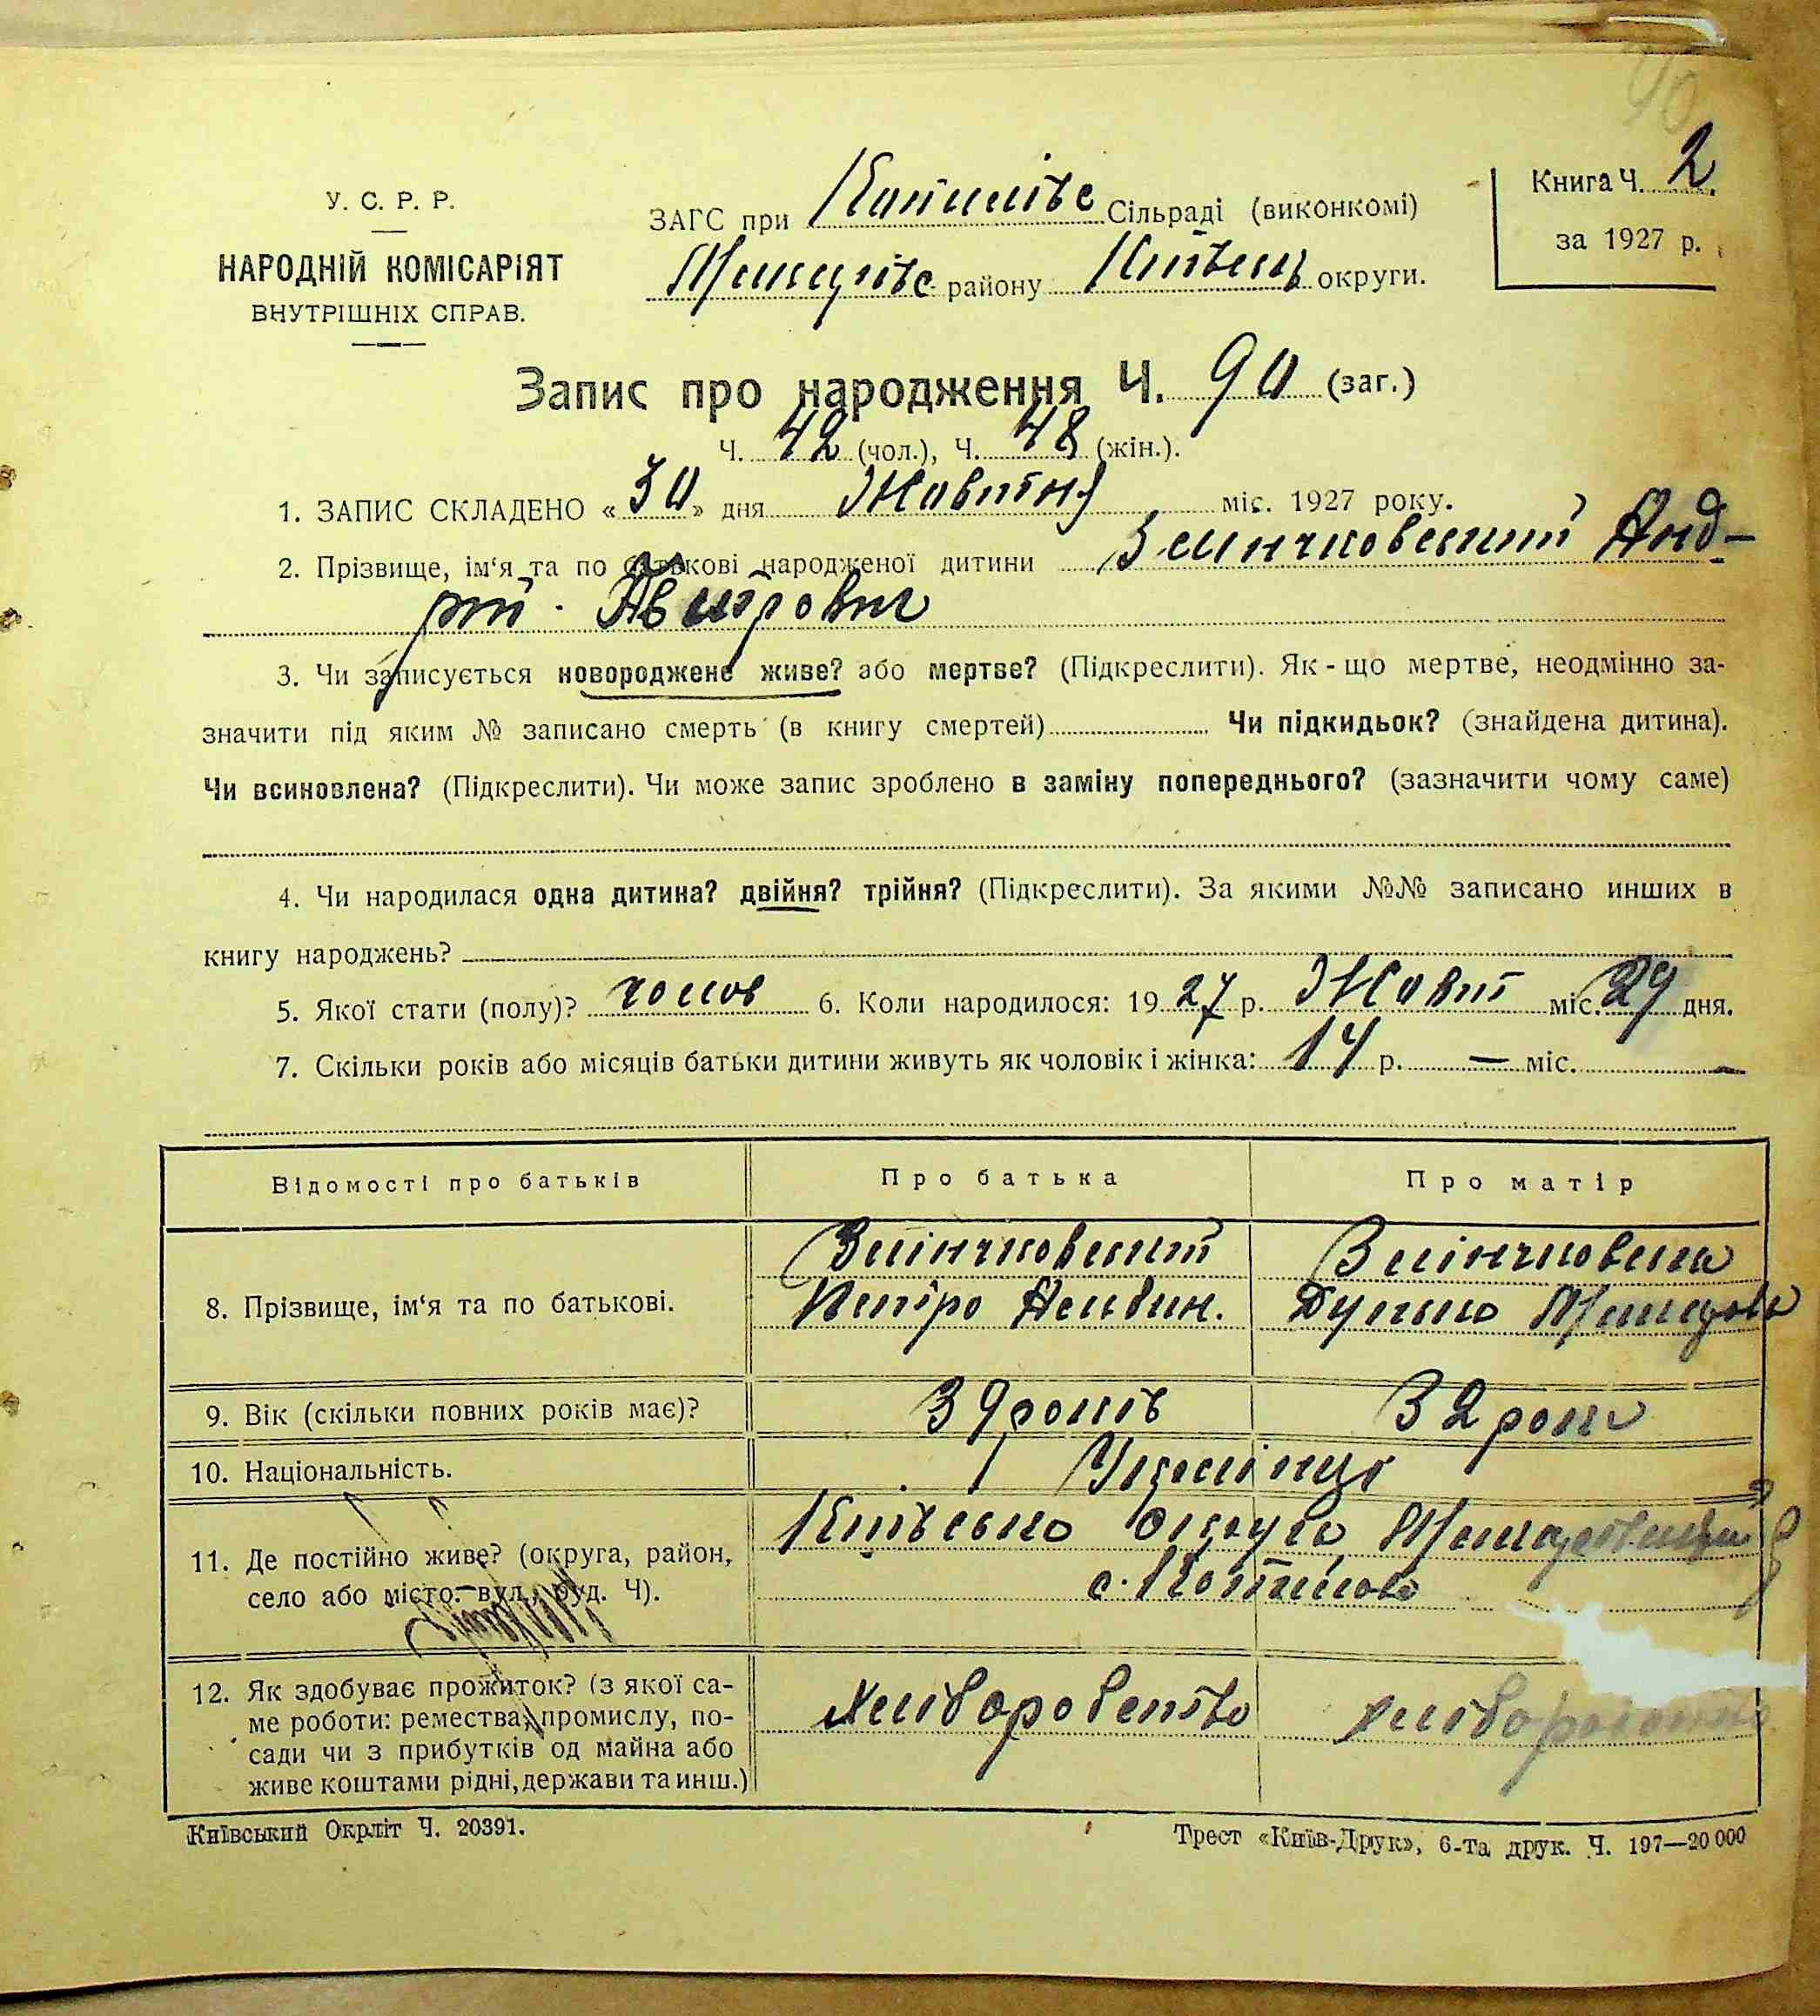 90
У. С. Р. Р.
НАРОДНІЙ КОМІСАРІЯТ
ВНУТРІШНІХ СПРАВ.
ЗАГС при Копилівс Сільраді (виконкомі)
Макарівс району Київськ округи.
Книга Ч. 2.
за 1927 р.
Запис про народження Ч. 90 (заг.)
Ч. 42 (чол.), Ч. 48 (жін.).
1. ЗАПИС СКЛАДЕНО « 30 » дня Жовтня міс. 1927 року.
2. Прізвище, ім‘я та по батькові народженої дитини Анд-
рій Петрович
3. Чи записується новороджене живе? або мертве? (Підкреслити). Як - що мертве, неодмінно за-
значити під яким № записано смерть (в книгу смертей) Чи підкидьок? (знайдена дитина).
Чи всиновлена? (Підкреслити). Чи може запис зроблено в заміну попереднього? (зазначити чому саме)
4. Чи народилася одна дитина? двійня? трійня? (Підкреслити). За якими №№ записано инших в
книгу народжень?
5. Якої стати (полу)? чолов 6. Коли народилося: 19 27 р. Жовт міс. 29 дня.
7. Скільки років або місяців батьки дитини живуть як чоловік і жінка: 14 р. — міс. —
Відомості про батьків
Про батька
Про матір
8. Прізвище, ім‘я та по батькові.
Петро
9. Вік (скільки повних років має)?
39 років
32 роки
10. Національність.
Українці
11. Де постійно живе? (округа, район,
село або місто. вул., буд. Ч).
Київська округа
с. Копилов
12. Як здобуває прожиток? (з якої са-
ме роботи: ремества, промислу, по-
сади чи з прибутків од майна або
живе коштами рідні, держави та инш.)
хліборобство
хліборобство
Київський Окрліт Ч. 20391.
Трест «Київ-Друк», 6-та друк. Ч. 197—20 000